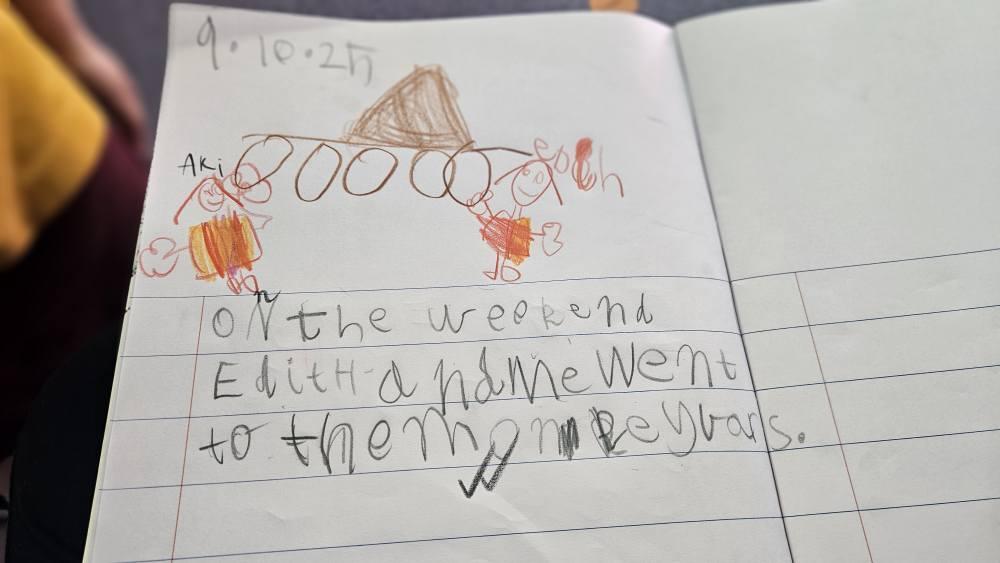 9.10.25
Aki
ON the weekend
EdiTH and Me Went
to the monkeybars.